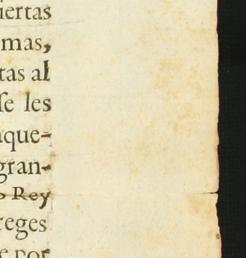 iertas
mas,
tas al
se les
aque-
gran-
o Rey
reges
e por